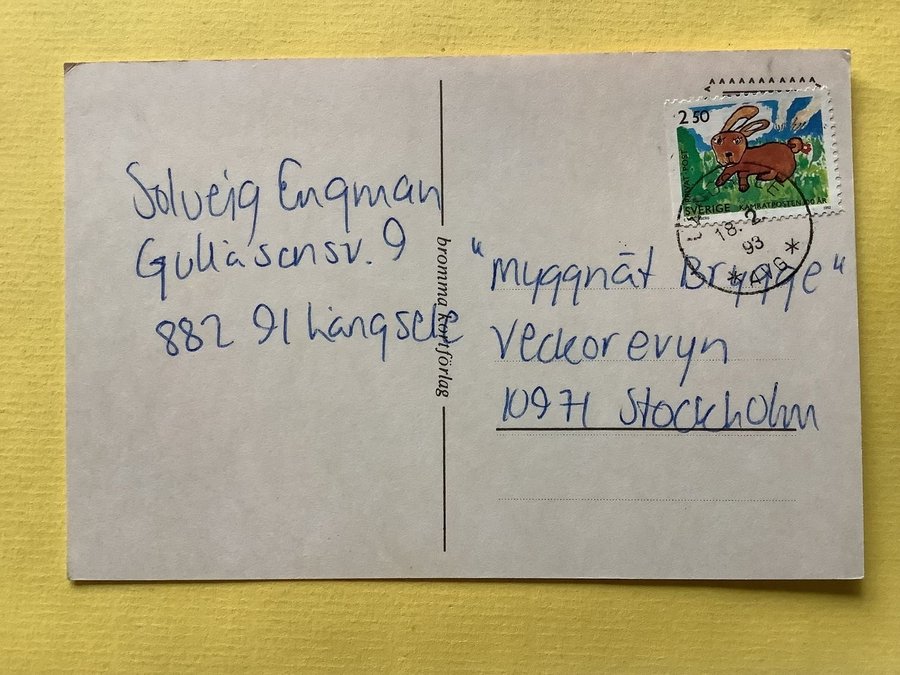 Solveig Engman
Gulliåsensv. 9
882 91 Långsele
bromma kortförlag
2 50
SVERIGE KAMRATPOSTEN 100 ÅR
18. 2
93
* AVG *
"Myggnät Brygge"
Veckorevyn
10971 Stockholm